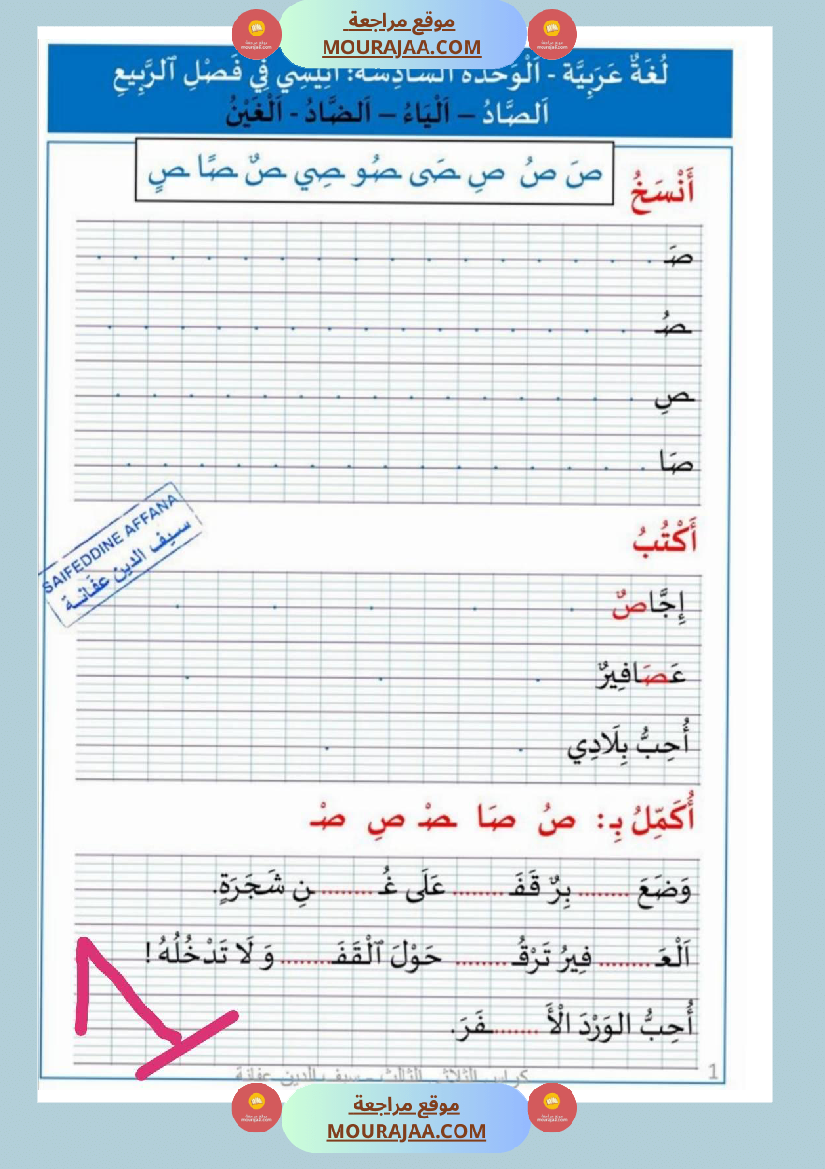 موقع مراجعة
MOURAJAA.COM
لُغَةٌ عَرَبِيَّة - اَلْوَحْدَةُ السَّادِسَةُ: أَنِيسِي فِي فَصْلِ ٱلرَّبِيعِ
اَلصَّادُ – اَلْيَاءُ – اَلضَّادُ - اَلْغَيْنُ
أَنْسَخُ
صَ صُ صِ صَى صُو صِي صٌ صًا صٍ
صَ
صُ
صِ
صَا
SAIFEDDINE AFFANA
سيف الدين عفانة
أَكْتُبُ
إِجَّاصٌ
عَصَافِيرٌ
أُحِبُّ بِلَادِي
أُكَمِّلُ بِـ: صُ صَا صْ صِ صْ
وَضَعَ ........ بِرٌ قَفَـ ........ عَلَى غُـ ........ ـنِ شَجَرَةٍ.
اَلْعَـ ........ فِيرُ تَرْقُـ ........ حَوْلَ ٱلْقَفَـ ........ وَ لَا تَدْخُلُهُ !
أُحِبُّ الوَرْدَ الْأَ ........ ـفَرَ.
كراس الثلاثي الثالث – سيف الدين عفانة
1
موقع مراجعة
MOURAJAA.COM